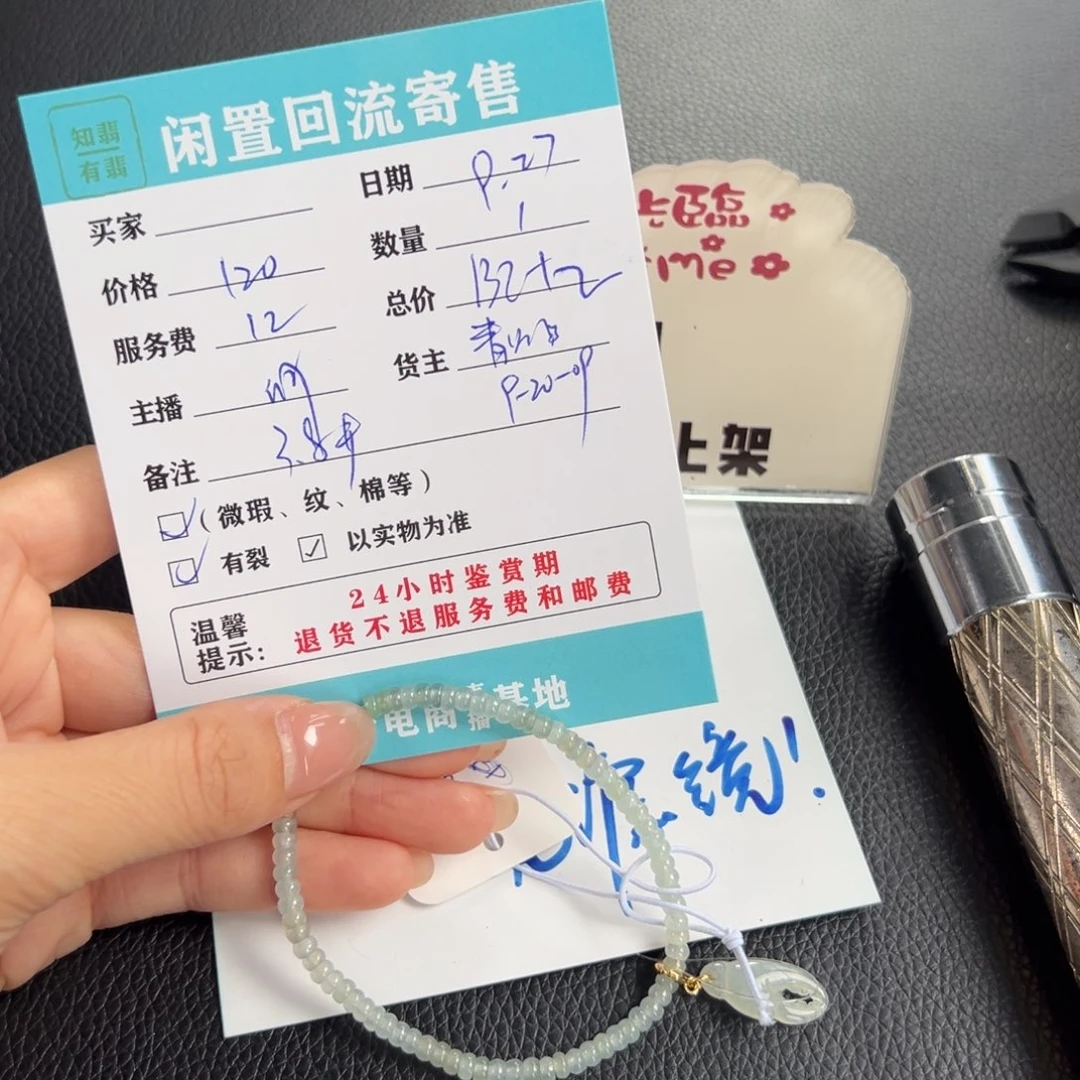 知翡
有翡
闲置回流寄售
买家
日期 9.27
价格 120
数量 1
服务费 12
总价 132+2
主播
货主
9-20-09
备注 3.8
(微瑕、纹、棉等)
有裂 ✓ 以实物为准
温馨
提示:
24小时鉴赏期
退货不退服务费和邮费
电商 播基地
光臨
me
上架